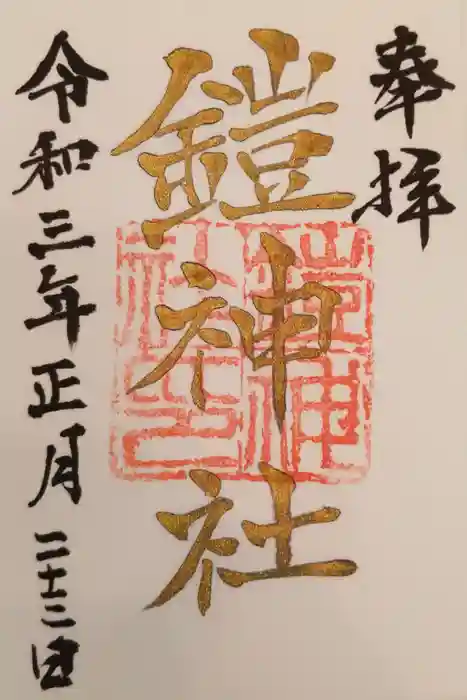 奉拝
鎧神社
令和三年正月二十三日
鎧神社印